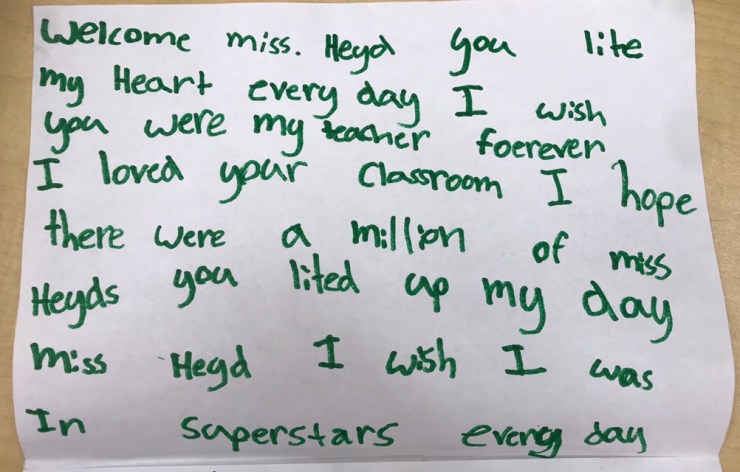 Welcome miss. Heyd you lite
my Heart every day I wish
you were my teacher foerever
I loved your Classroom I hope
there were a million of miss
Heyds you lited up my day
miss Heyd I wish I was
In superstars every day